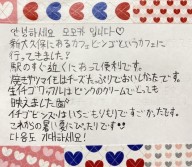 안녕하세요 모모카 입니다♡
新大久保にあるカフェビンゴというカフェに
行ってきました？
駅のすぐ近くにあって便利です。
焼きサツマイモはチーズたっぷりでおいしかたです。
生イチゴワッフルはピンクのクリームでとっても
映えました
イチゴビンスーはいちごもりもりですごかたです。
これからの暑い夏にぴったりです!!
다음도 기대하세요!